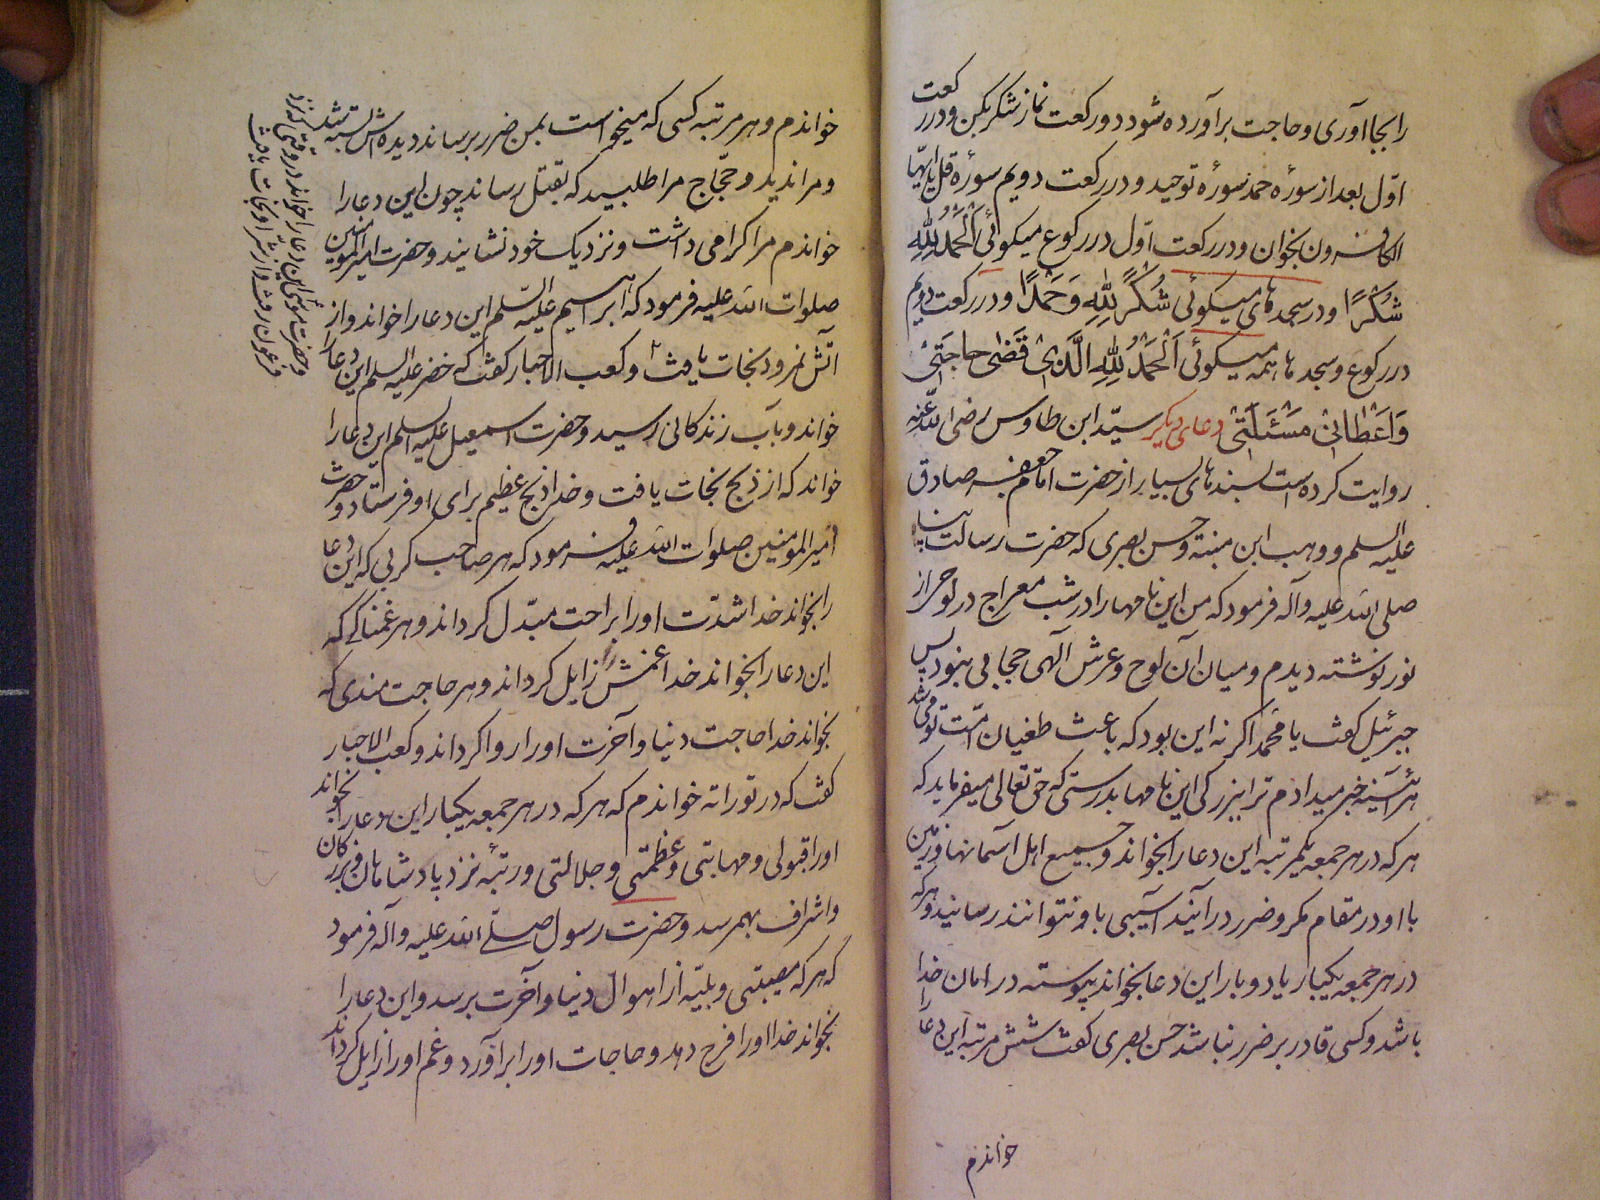 را بجا آوری و حاجت برآورده شود دو رکعت نماز شکر بکن و در رکعت
اوّل بعد از سورهٔ حمد سورهٔ توحید و در رکعت دویم سورهٔ قل یا ایّها
الکافرون بخوان و در رکعت اوّل در رکوع میگوئی اَلْحَمْدُ لِلّٰهِ
شُکْرًا و در سجدهای میگوئی شُکْرًا لِلّٰهِ وَحَمْدًا و در رکعت دویم
در رکوع و سجدها همه میگوئی اَلْحَمْدُ لِلّٰهِ الَّذی قَضٰی حاجَتی
وَاَعْطانی مَسْئَلَتی دعای دیگر سیّد ابن طاوس رضی اللّه عنه
روایت کرده است بسندهای بسیار از حضرت امام جعفر صادق
علیه السلم و وهب ابن منبّه و حسن بصری که حضرت رسالت پناه
صلی اللّه علیه وآله فرمود که من این نامها را در شب معراج در لوحی از
نور نوشته دیدم و میان آن لوح و عرش آلهی حجابی نبود پس
جبرئیل گفت یا محمّد اگر نه این بود که باعث طغیان امّت تو می شد
هر آئینه خبر میدادم ترا ببزرگی این نامها بدرستی که حق تعالی میفرماید که
هر که در هر جمعه یکمرتبه این دعا را بخواند و جمیع اهل آسمانها و زمین
با او در مقام مکر و ضرر در آیند آسیبی باو نتوانند رسانید و هر که
در هر جمعه یکبار یا دو بار این دعا بخواند پیوسته در امان خدا
باشد و کسی قادر بر ضرر نباشد حسن بصری گفت شش مرتبه این دعا را
خواندم
خواندم و هر مرتبه کسی که میخواست بمن ضرر برساند دیده اش بسته شد
و مرا ندید و حجّاج مرا طلبید که بقتل رساند چون این دعا را
خواندم مرا گرامی داشت و نزدیک خود نشانید و حضرت امیر المؤمنین
صلوات اللّه علیه فرمود که ابراهیم علیه السّلم این دعا را خواند و از
آتش نمرود نجات یافت و کعب الاحبار گفت که خضر علیه السلم این دعا را
خواند و بآب زندگانی رسید و حضرت اسمعیل علیه السلم این دعا را
خواند که از ذبح نجات یافت و خدا ذبح عظیم برای او فرستاد و حضرت
امیر المومنین صلوات اللّه علیه فرمود که هر صاحب کربی که این دعا
را بخواند خدا شدّت او را براحت مبدّل گرداند و هر غمناکی که
این دعا را بخواند خدا غمش را زایل گرداند و هر حاجت مندی که
بخواند خدا حاجت دنیا و آخرت او را روا گرداند و کعب الاحبار
گفت که در توراة خواندم که هر که در هر جمعه یکبار این دعا را بخواند
او را قبولی و مهابتی و عظمتی و جلالتی و رتبهٔ نزد پادشاهان و بزرگان
و اشراف بهم رسد و حضرت رسول صلّی اللّه علیه وآله فرمود
که هر که مصیبتی و بلیّهٔ از اهوال دنیا و آخرت برسد و این دعا را
بخواند خدا او را فرح دهد و حاجات او را برآورد و غم او را زایل گرداند
و حضرت موسی این دعا را خواند در وقتی که نزد
فرعون رفت و از شرّ او نجات یافت